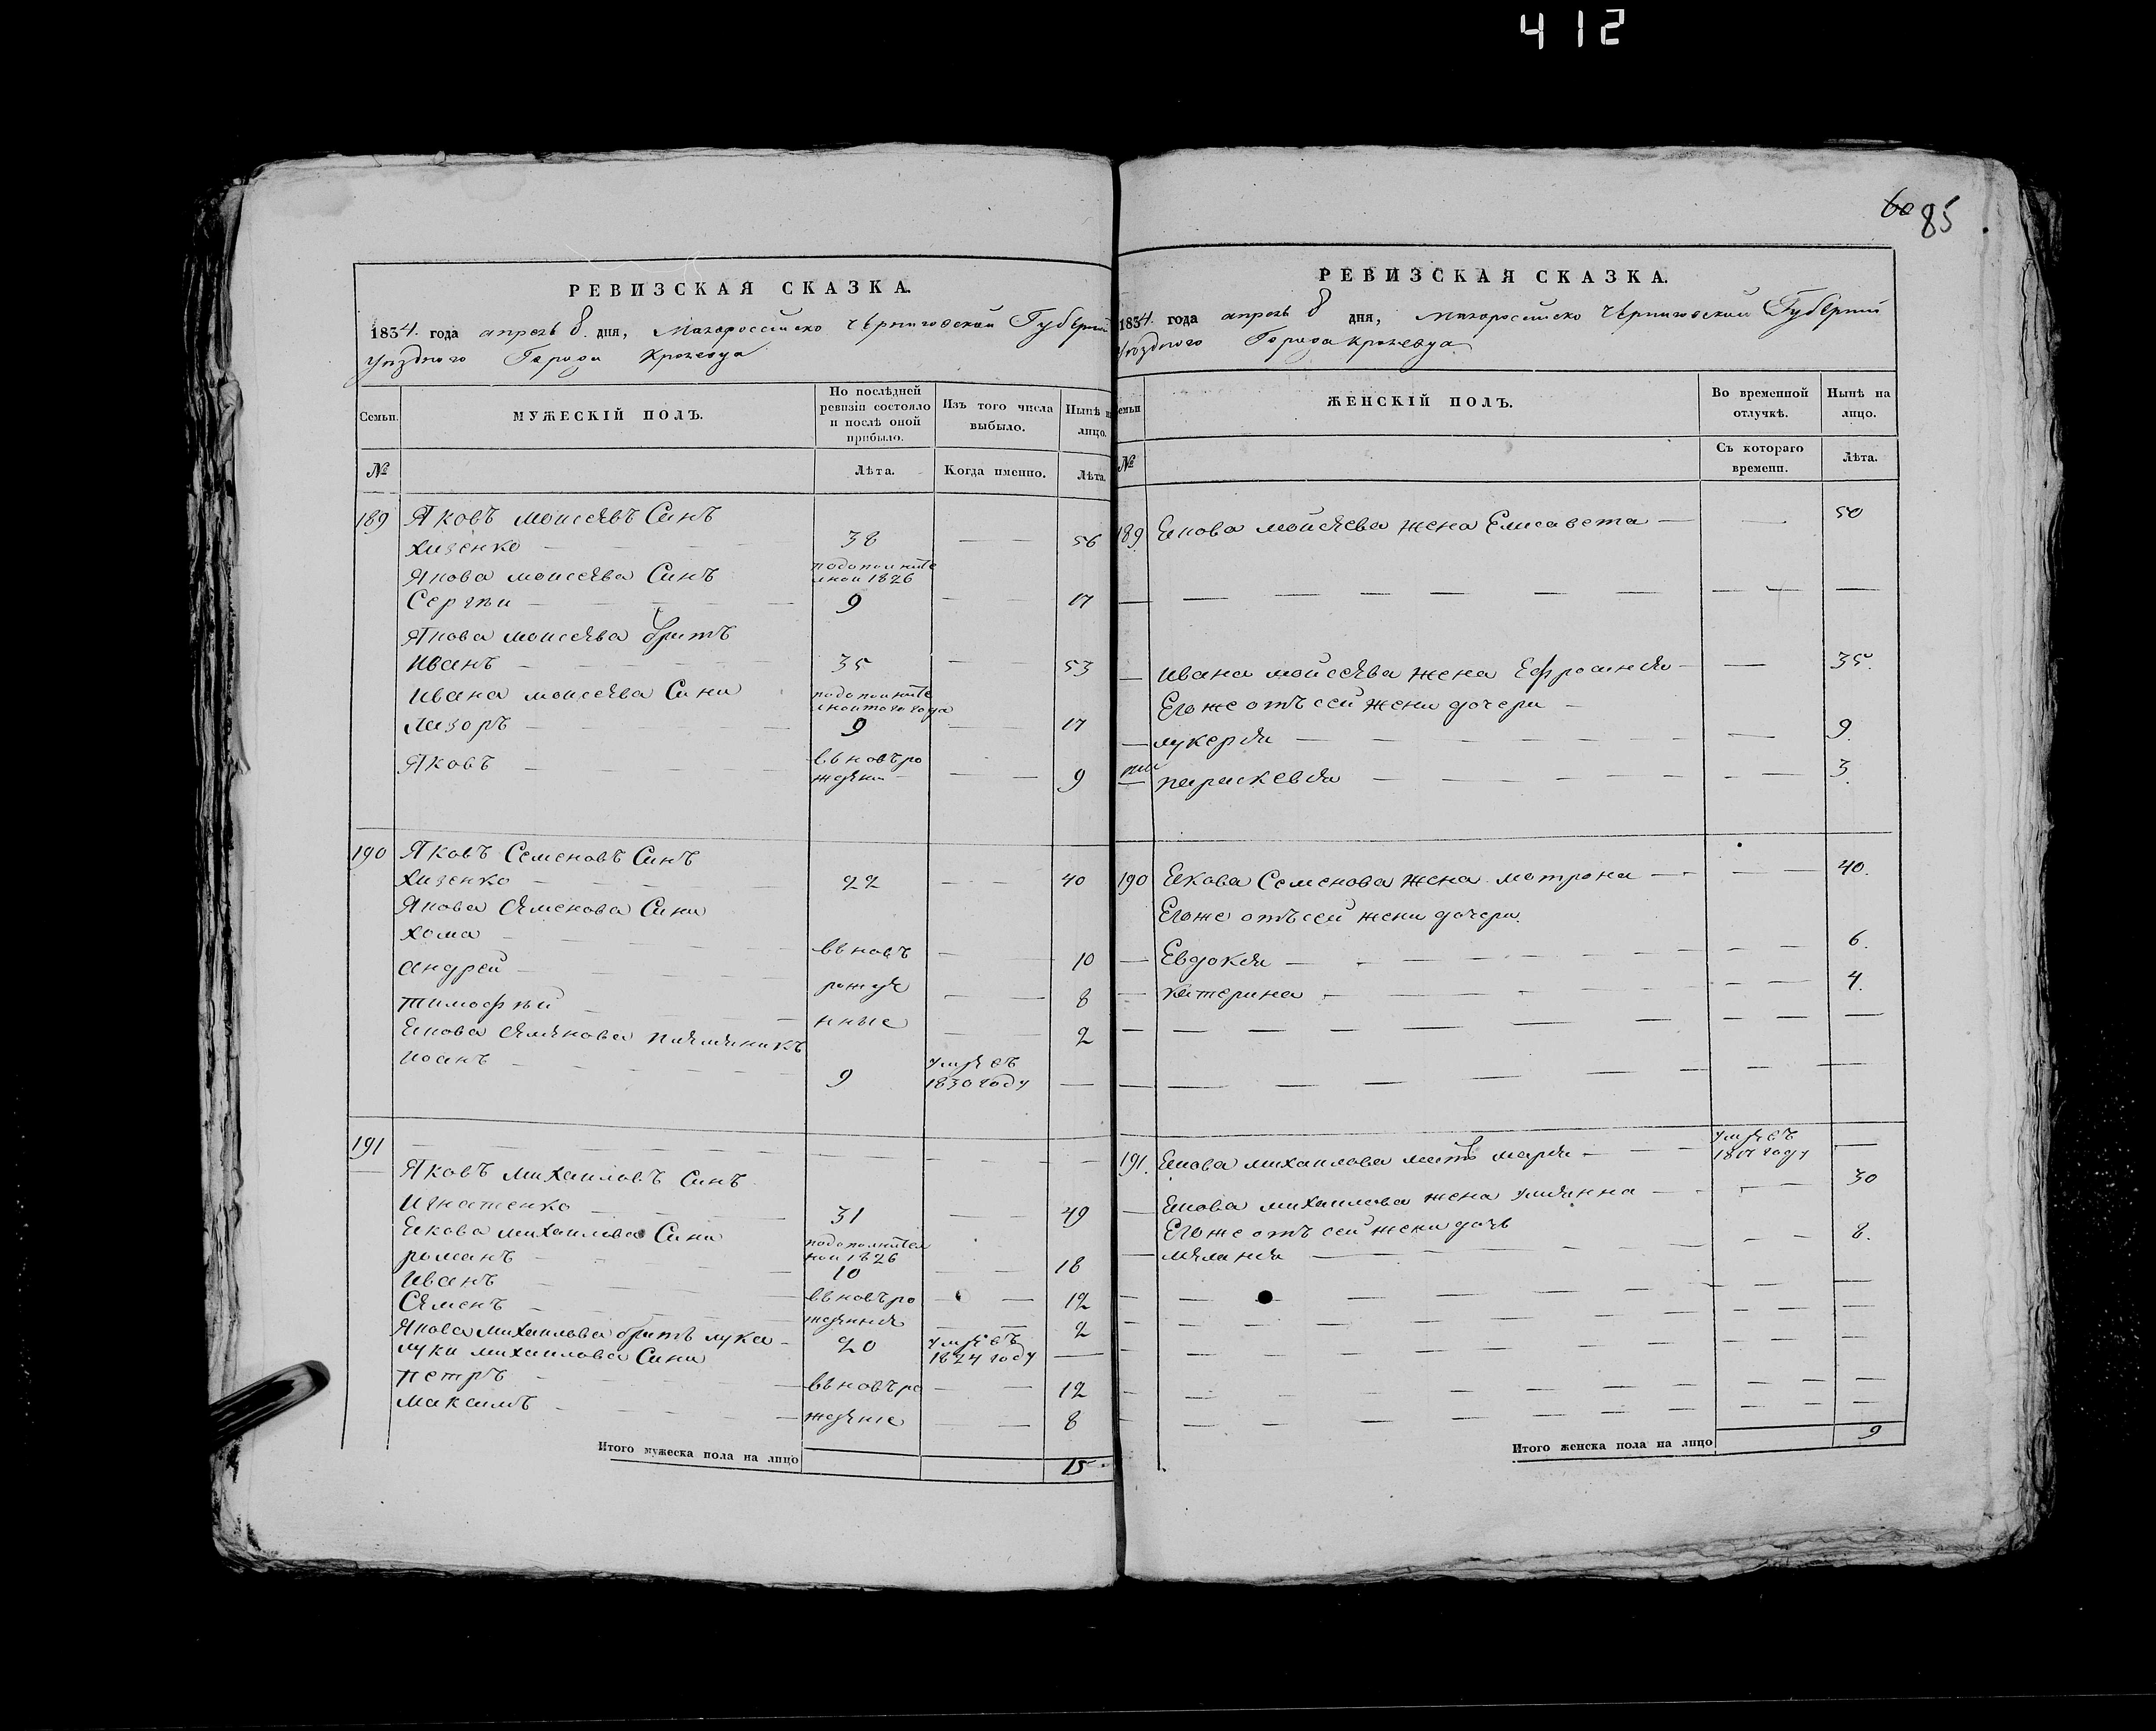 412
60 85
РЕВИЗСКАЯ СКАЗКА.
1834. года апрель 8. дня, Малороссийско Черниговской Губернии
уѣздного Города Кролевца
Семьи.
МУЖЕСКІЙ ПОЛЪ.
По послѣдней ревизіи состояло и послѣ оной прибыло.
Изъ того числа выбыло.
Нынѣ на лицо.
№
Лѣта.
Когда именно.
Лѣта.
189 Яковъ моисеевъ Синъ
Хизенко — 38 — — 56
Якова моисеева Синъ подополните
лной 1826
Сергѣй — 9 — — 17
Якова моисеева братъ
Иванъ — 35 — — 53
Ивана моисеева Сини подополните
лной того года
Лазоръ — 9 — 17
Яковъ — вь новъ ро
жденн — — — 9
190 Яковъ Семеновъ Синъ
Хизенко — 22 — — 40
Якова Семенова Сини
Хома — вь новъ — — 10
Андрей — рожде — — 8
Тимофѣй — нные — — 2
Якова Семенова племяникъ
Иоанъ — 9 умревъ
1830 году —
191 — — —
Яковъ Михаиловъ Синъ
Игнатенко — 31 — — 49
Якова михаилова Сини подополнител
ной 1826
романъ — 10 — — 18
Иванъ — вь новъ ро — — 12
Семенъ — ждення — — 2
Якова михаилова братъ лука — 20 умревъ
1824 году —
луки михаилова Сини
Петръ — вь новъ ро — — 12
Максимъ — ждение — — 8
Итого мужеска пола на лицо 15
РЕВИЗСКАЯ СКАЗКА.
1834. года апрель 8 дня, Малоросийско Черниговской Губернии
уѣздного Города Кролевца
Семьи
ЖЕНСКІЙ ПОЛЪ.
Во временной отлучкѣ.
Нынѣ на лицо.
№
Съ котораго времени.
Лѣта.
189 Якова мойсеева жена Елисавета — — 50
Ивана мойсеева жена Ефросиния — — 35.
Его же отъ сей жени дочери —
лукерия — — 9.
параскевия — — 3.
190 Якова Семенова жена матрона — — 40.
Его же отъ сей жени дочери.
Евдокия — — 6.
Катерина — — 4.
191. Якова михаилова мать мария — умревъ
1817 году —
Якова михаилова жена улиянна — — 30
Его же отъ сей жени дочь
мелания — — 8.
Итого женска пола на лицо 9